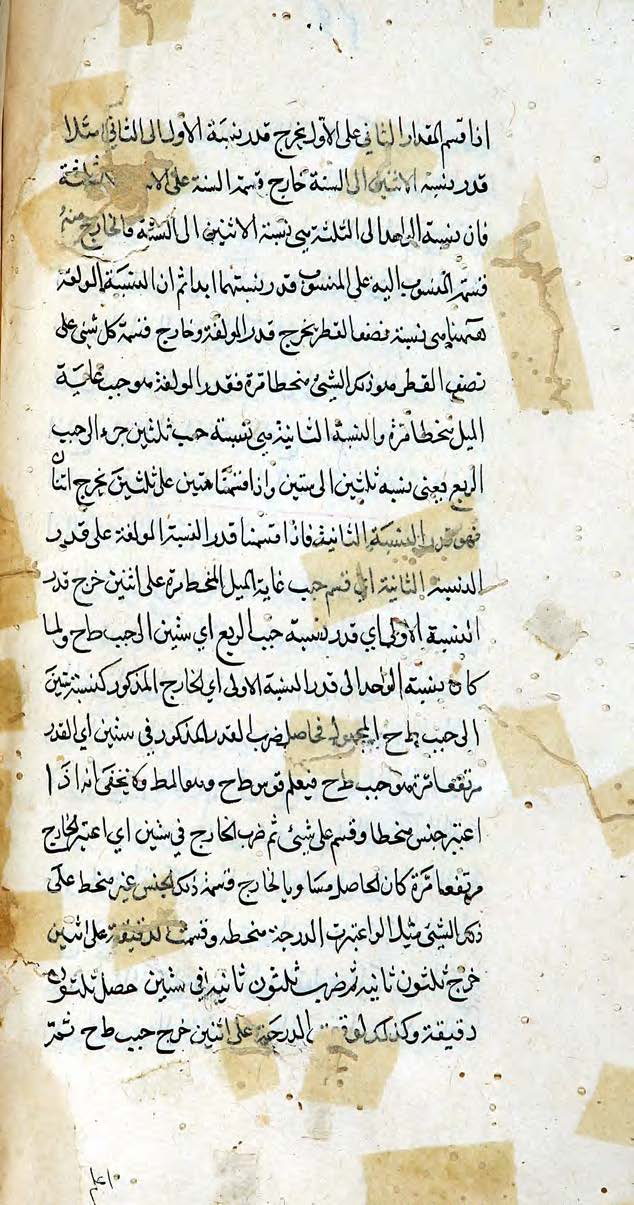 اذا قسم المقدار الثاني على الاول يخرج قدر نسبة الاول الى الثاني مثلا
قدر نسبة الاثنين الى الستة خارج قسمة الستة على الا الثلثة
فان نسبة الواحد الى الثلثة هي نسبة الاثنين الى الستة فالخارج منه
قسمة المنسوب اليه على المنسوب قدر نسبتهما ابدا ثم ان النسبة المولفة
ههنا هي نسبة نصف القطر يخرج قدر المولفة وخارج قسمة كل شئ على
نصف القطر هو ذلك الشئ منحطا مرة فقدر المولفة هو جيب غاية
الميل منحطا مرة والنسبة الثانية هي نسبة جيب ثلثين جزء الى جيب
الربع يعني نسبة ثلثين الى ستين واذا قسمنا ستين على ثلثين يخرج اثنان
فهو قدر النسبة الثانية فاذا قسمنا قدر النسبة المولفة على قدر
النسبة الثانية اي قسم جيب غاية الميل المنحط مرة على اثنين خرج قدر
النسبة الاولى اي قدر نسبة جيب الربع اي ستين الى جيب طح ولما
كان نسبة الواحد الى قدر النسبة الاولى اي الخارج المذكور كنسبة ستين
الى جيب طح المجهول فحاصل ضرب القدر المذكور في ستين اي القدر
مرتفعا مرة هو جيب طح فيعلم قوس طح وهو المط ولا يخفى انه اذا
اعتبر جنس منحطا وقسم على شئ ثم ضرب الخارج في ستين اي اعتبر الخارج
مرتفعا مرة كان الحاصل مساويا لخارج قسمة ذلك الجنس غير منحط على
ذلك الشئ مثلا لو اعتبرت الدرجة منحطه وقسمت الدقيقة على اثنين
خرج ثلثون ثانية ثم ضرب ثلثون ثانية في ستين حصل ثلثون
دقيقة وكذلك لو قسمت الدرجة على اثنين خرج جيب طح ثمر
اعلم